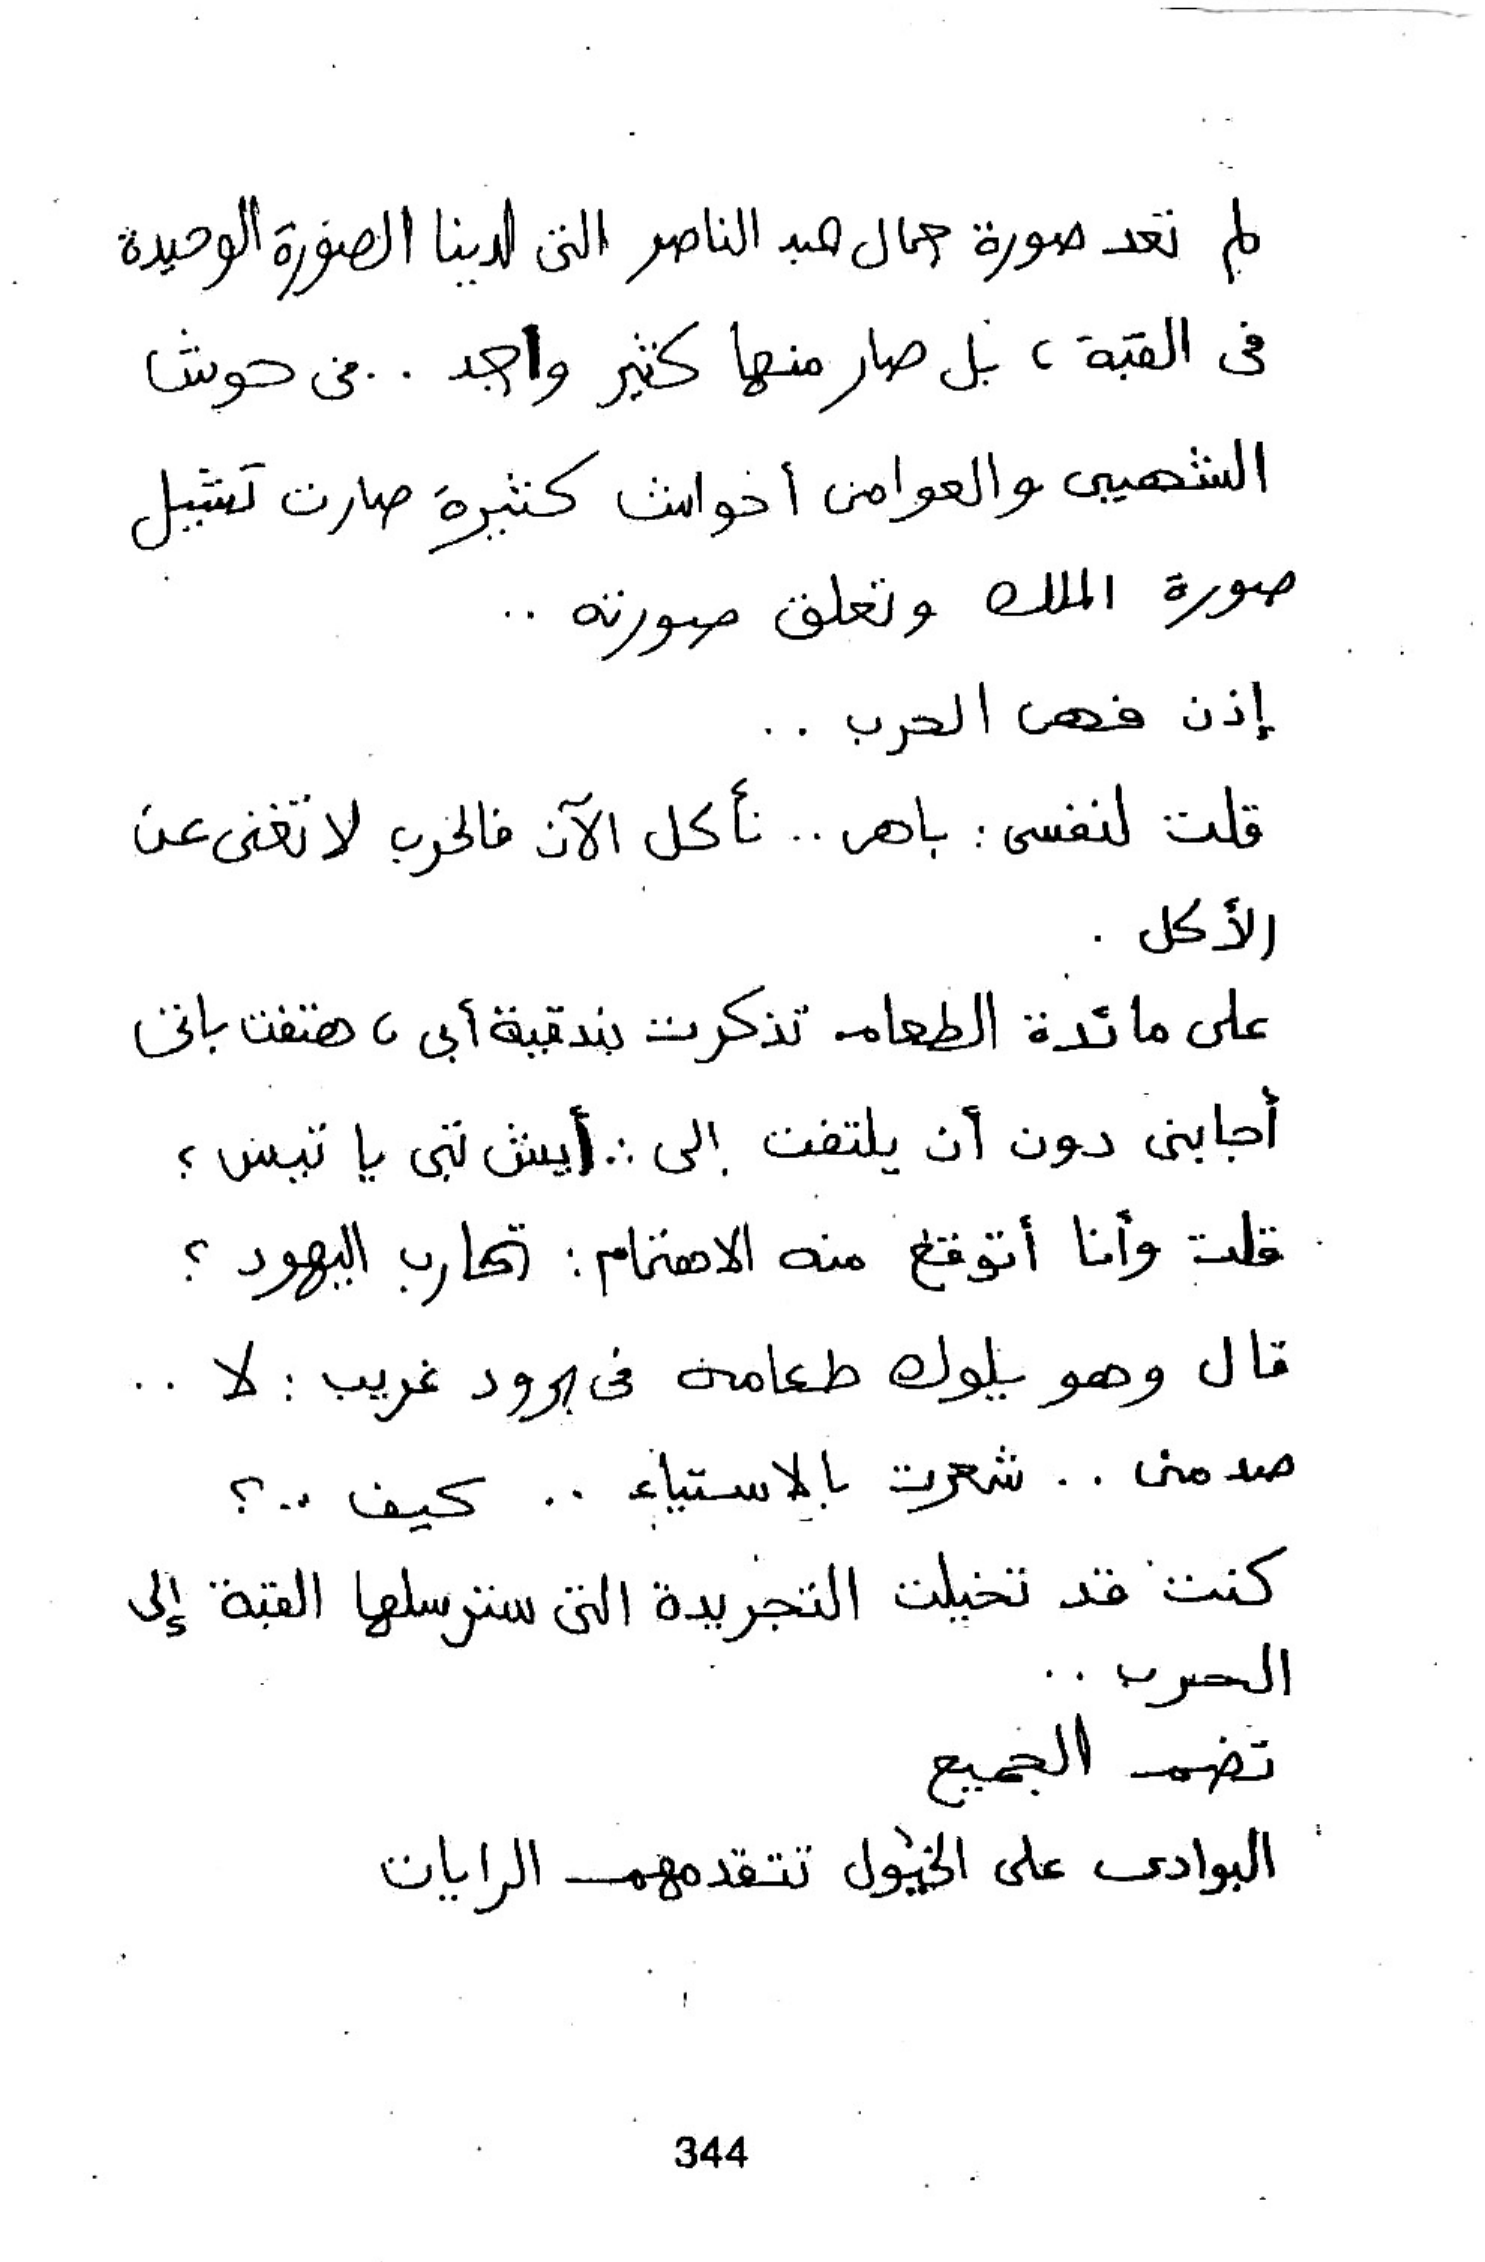 لم تعد صورة جمال عبد الناصر التى لدينا الصورة الوحيدة
فى القبة ، بل صار منها كثير واجد .. فى حوش
الشهيبى والعوامى أحواش كثيرة صارت تشيل
صورة الملك وتعلق صورته ..
إذن فهى الحرب ..
قلت لنفسى : باهى .. نأكل الآن فالحرب لا تغنى عن
الأكل .
على مائدة الطعام تذكرت بندقية أبى ، هتفت باتى
أجابنى دون أن يلتفت إلى : .. أيش تبى يا تيس ؟
قلت وأنا أتوقع منه الاهتمام : تحارب اليهود ؟
قال وهو يلوك طعامه فى برود غريب : لا ..
صدمنى .. شعرت بالاستياء .. كيف .. ؟
كنت قد تخيلت التجريدة التى سترسلها القبة إلى
الحرب ..
تضم الجميع
البوادى على الخيول تتقدمهم الرايات
344